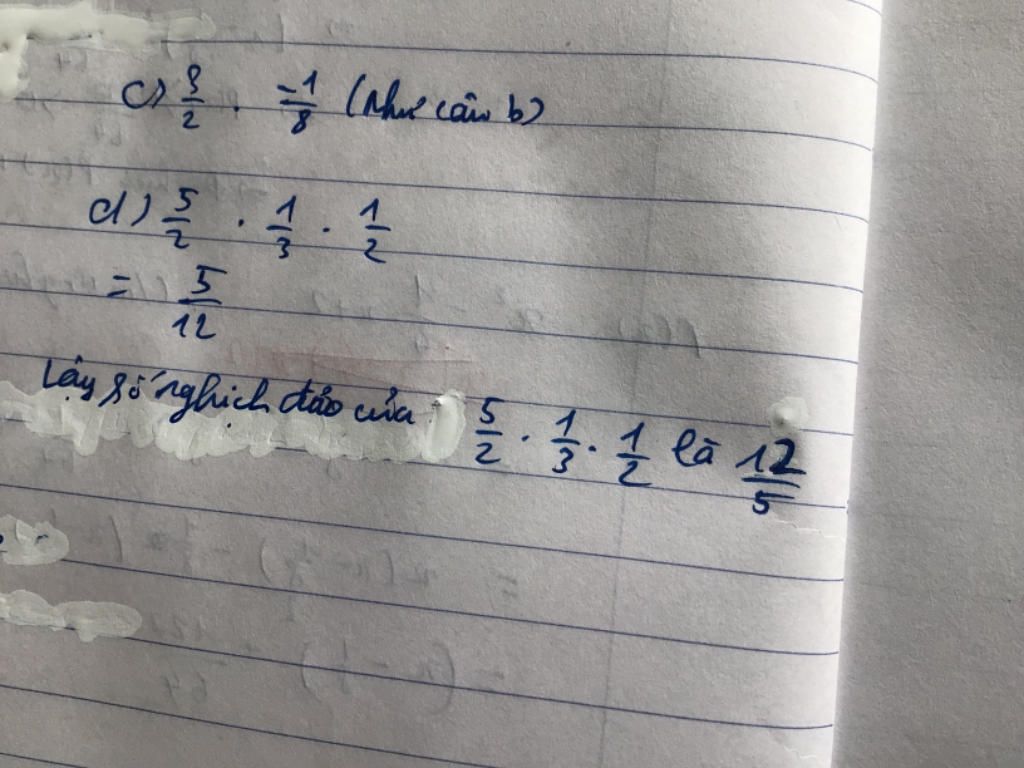 c) 3/2 . -1/8 (như câu b)
d) 5/2 . 1/3 . 1/2
= 5/12
Lấy số nghịch đảo của 5/2 . 1/3 . 1/2 là 12/5